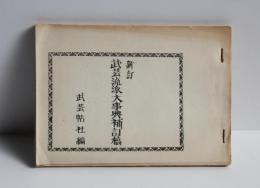 新訂
武芸流派大事典補訂稿
武芸帖社編